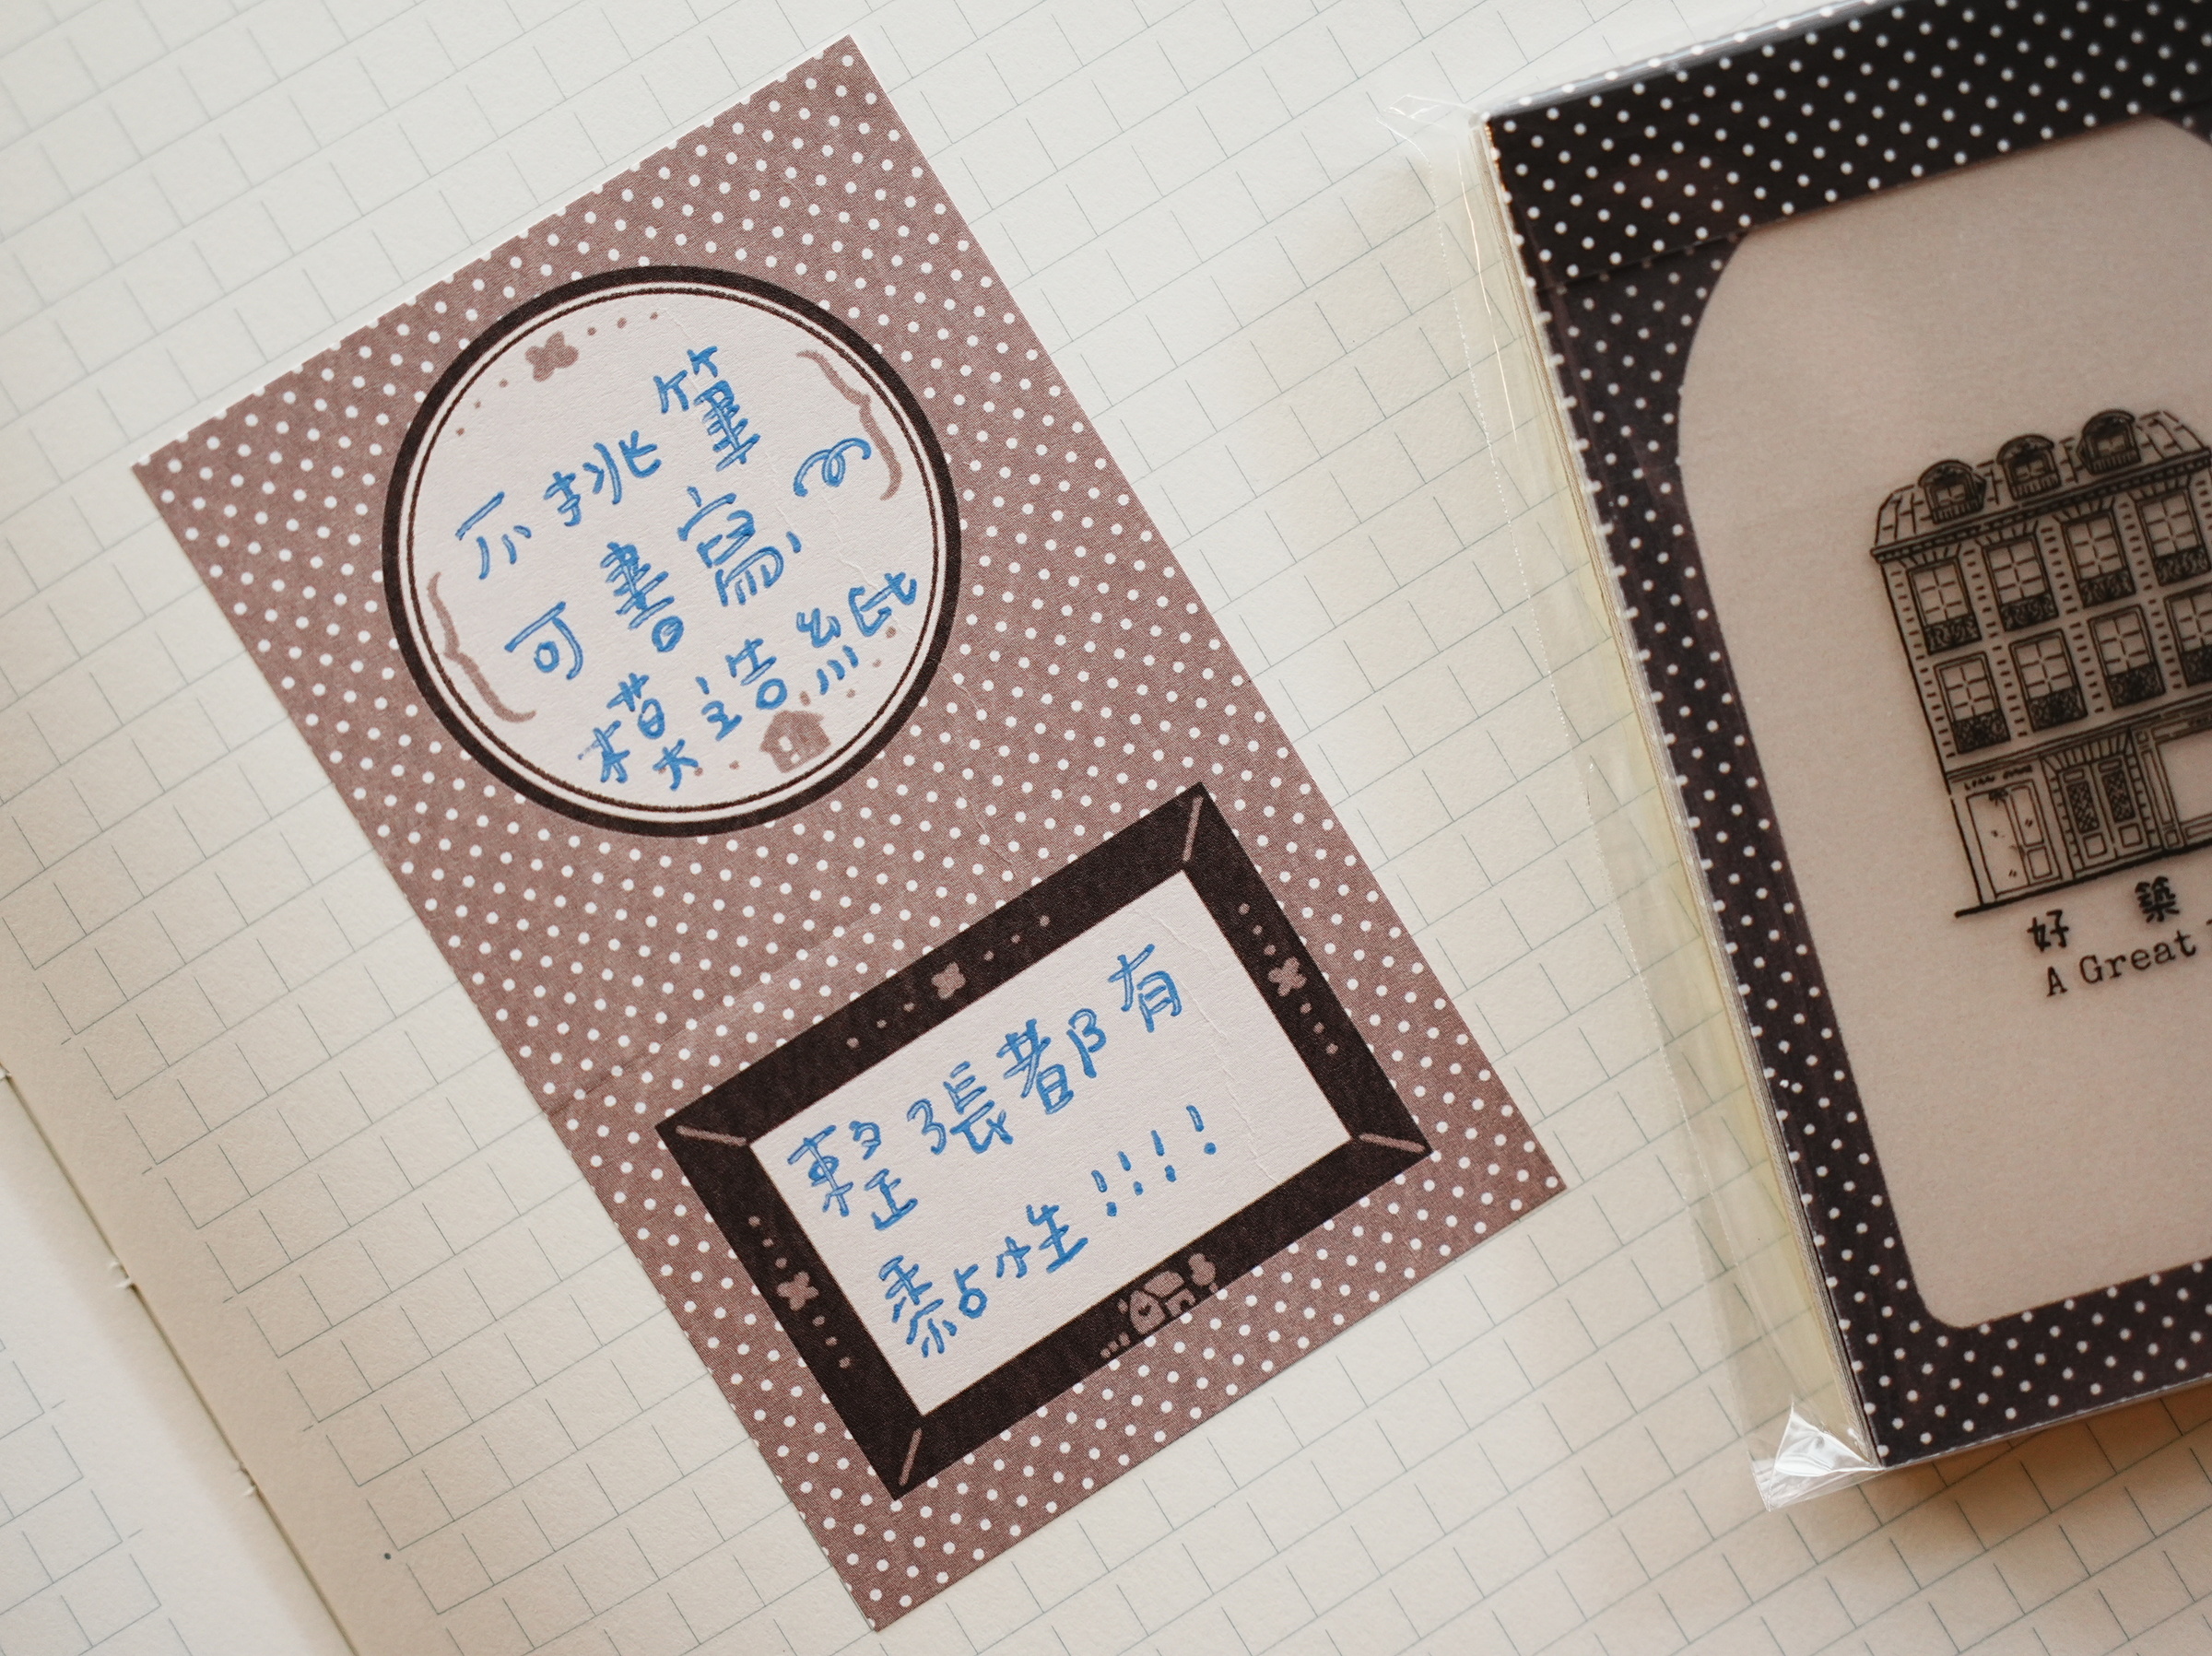 不挑筆
可書寫
模造紙
整張都有
黏性!!!!
好築
A Great